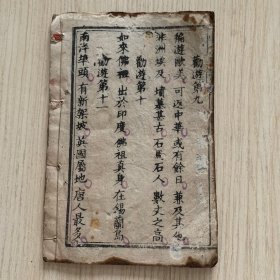 勸遊第九
徧遊歐美 可返中華 或有餘日 兼及其他
非洲埃及 墳墓甚古 石馬石人 數丈之高
勸遊第十
如來佛祖 出於印度 佛祖真身 在錫蘭島
勸遊第十一
南洋埠頭 有新架坡 英國屬地 唐人最多